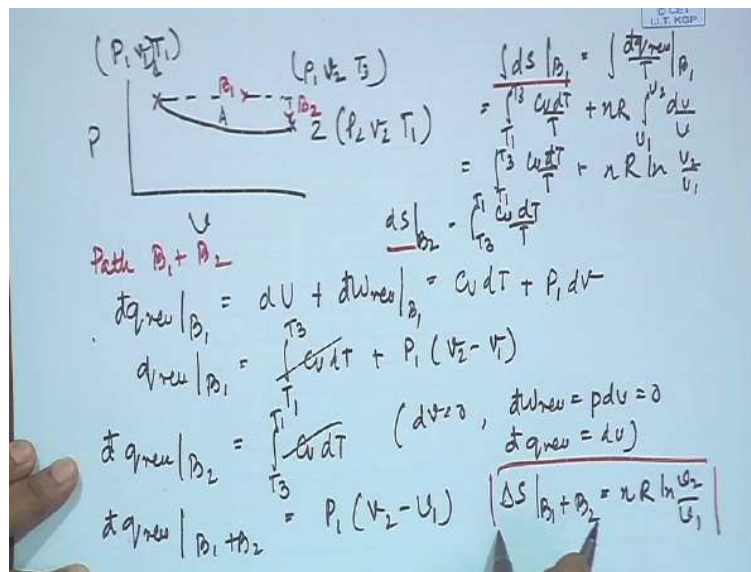 I.I.T. KGP
(P₁ V₁ T₁)
(P₁ V₂ T₃)
B₁
B₂
A
2 (P₂ V₂ T₁)
P
V
∫ dS |B₁ = ∫ đq_rev/T |B₁
= ∫_{T₁}^{T₃} Cv dT/T + nR ∫_{V₁}^{V₂} dv/v
= ∫_{T₁}^{T₃} Cv dT/T + nR ln V₂/V₁
dS |B₂ = ∫_{T₃}^{T₁} Cv dT/T
Path B₁ + B₂
đq_rev |B₁ = dU + đW_rev |B₁ = Cv dT + P₁ dv
q_rev |B₁ = ∫_{T₁}^{T₃} Cv dT + P₁ (V₂ - V₁)
đq_rev |B₂ = ∫_{T₃}^{T₁} Cv dT (dV=0, đW_rev = pdv = 0
đq_rev = dU)
đq_rev |B₁+B₂ = P₁ (V₂ - V₁)
ΔS |B₁+B₂ = nR ln V₂/V₁